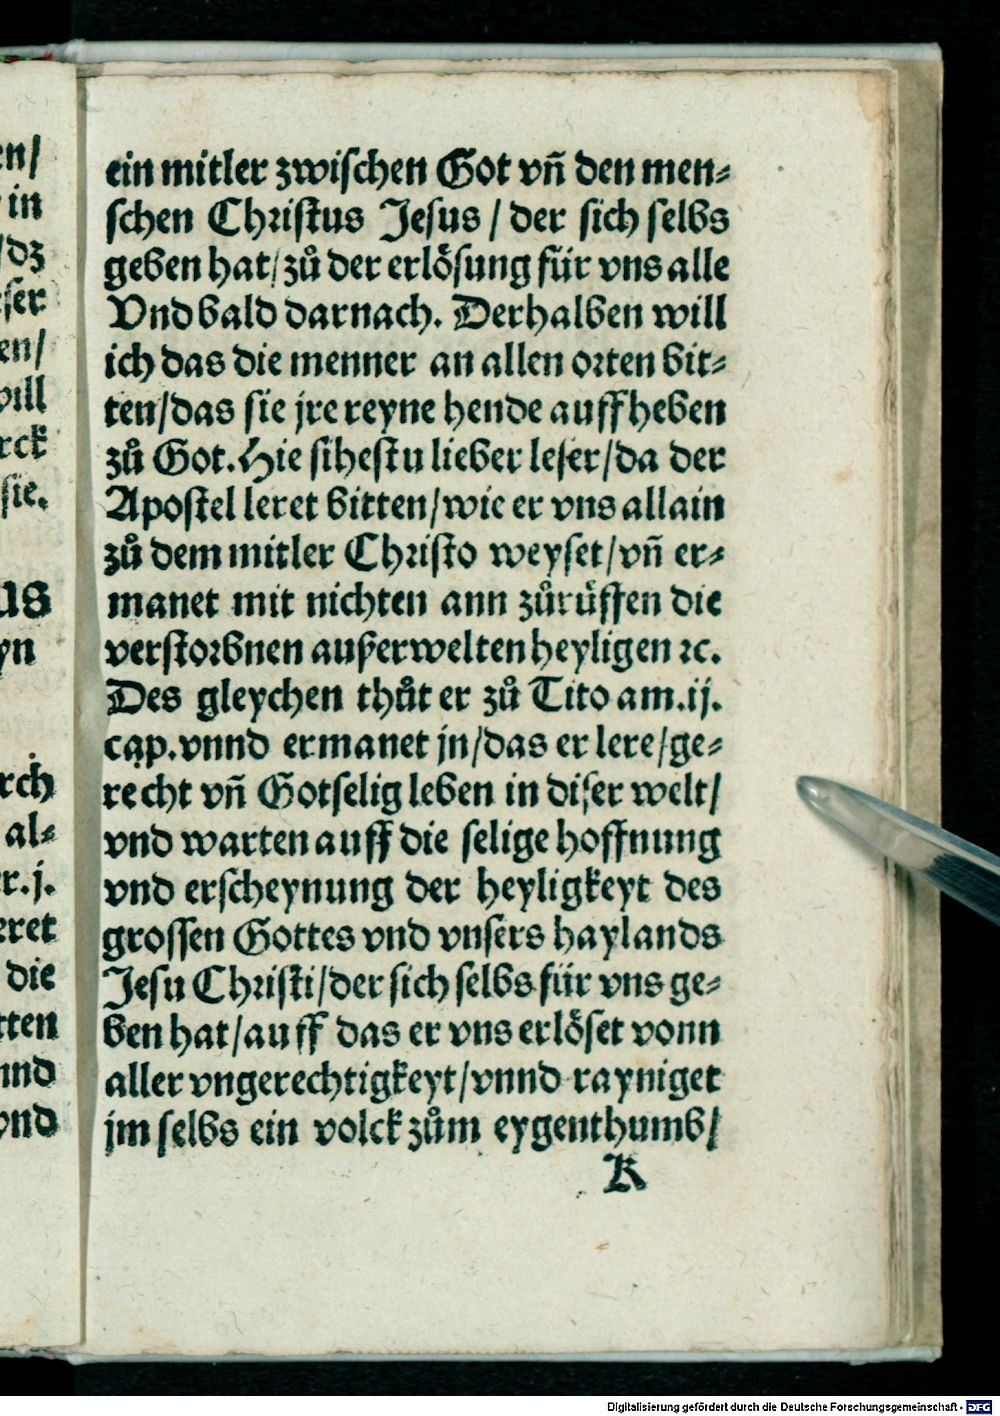 ein mitler zwischen Got vñ den men⸗
schen Christus Jesus / der sich selbs
geben hat / zů der erlösung für vns alle
Vnd bald darnach. Derhalben will
ich das die menner an allen orten bit⸗
ten / das sie jre reyne hende auffheben
zů Got. Hie sihestu lieber leser / da der
Apostel leret bitten / wie er vns allain
zů dem mitler Christo weyset / vñ er⸗
manet mit nichten ann zůrüffen die
verstorbnen außerwelten heyligen ⁊c.
Des gleychen thůt er zů Tito am .ij.
cap. vnnd ermanet jn / das er lere / ge⸗
recht vñ Gotselig leben in diser welt /
vnd warten auff die selige hoffnung
vnd erscheynung der heyligkeyt des
grossen Gottes vnd vnsers haylands
Jesu Christi / der sich selbs für vns ge⸗
ben hat / auff das er vns erlöset vonn
aller vngerechtigkeyt / vnnd rayniget
jm selbs ein volck zům eygenthumb /
K
en /
in
/ dz
ser
en /
will
rck
sie.
us
yn
rch
al⸗
r. j.
eret
die
tten
nnd
vnd
Digitalisierung gefördert durch die Deutsche Forschungsgemeinschaft - DFG